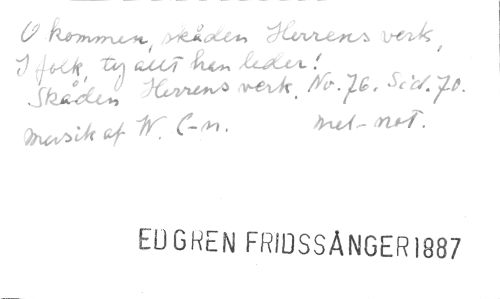 O kommen, skåden Herrens verk,
I folk, ty allt han leder!
Skåden Herrens verk. No. 76. Sid. 70.
Musik af W. C-n. mel-not.
EDGREN FRIDSSÅNGER 1887